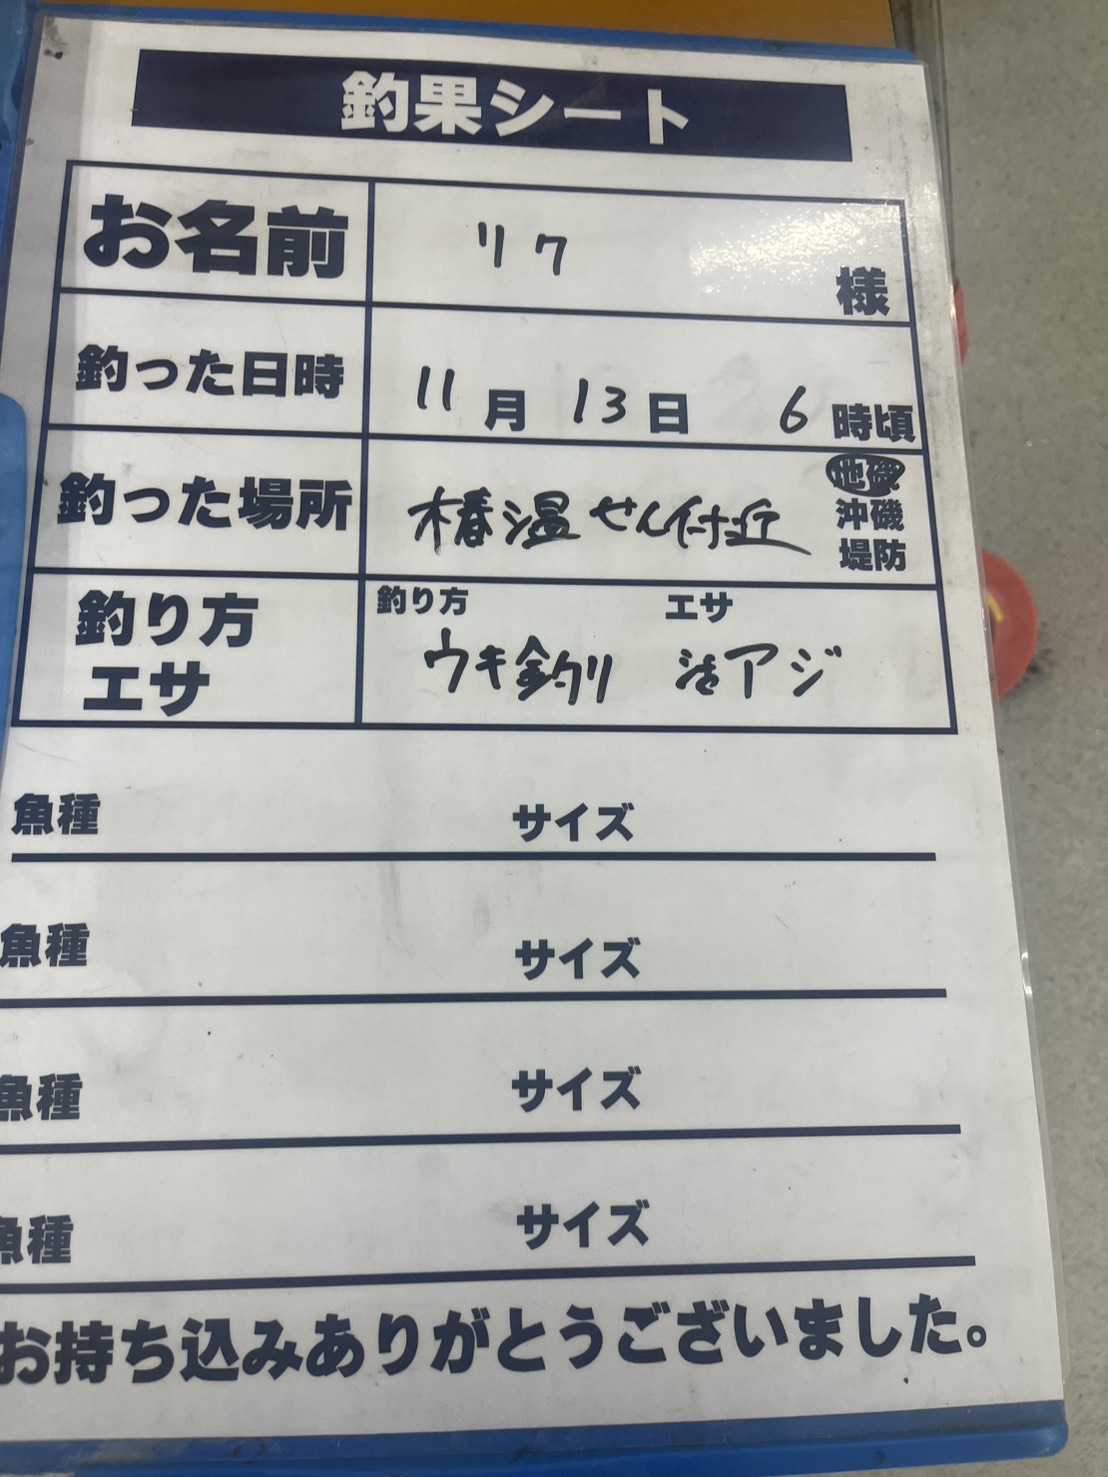 釣果シート
お名前 リク 様
釣った日時 11月 13日 6時頃
釣った場所 椿温せん付近 地磯
沖磯
堤防
釣り方 エサ
釣り方
エサ
ウキ釣り 活アジ
魚種 サイズ
魚種 サイズ
魚種 サイズ
魚種 サイズ
お持ち込みありがとうございました。